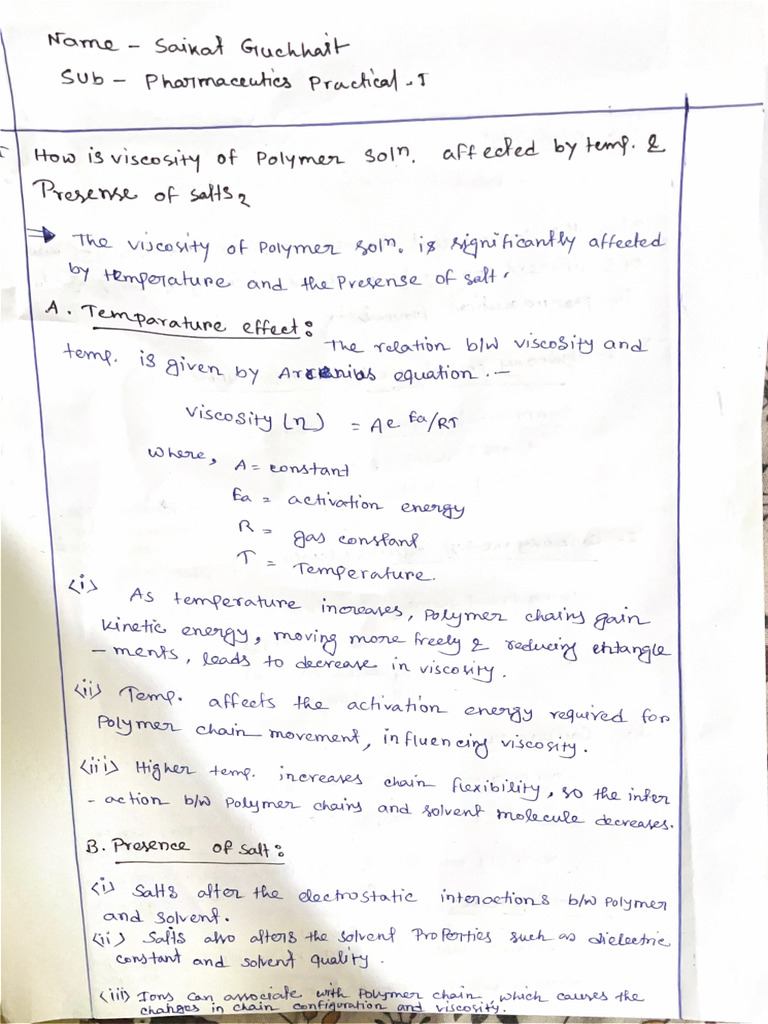 Name - Saikat Guchhait
Sub - Pharmaceutics Practical - I
How is viscosity of Polymer solⁿ. affected by temp. &
Presense of salts?
⇒ The viscosity of Polymer solⁿ. is significantly affected
by temperature and the Presense of salt.
A. Temparature effect:
The relation b/w viscosity and
temp. is given by Arrenius equation. —
Viscosity (η) = Ae Ea/RT
Where, A = constant
Ea = activation energy
R = gas constant
T = Temperature.
<i> As temperature increases, Polymer chains gain
kinetic energy, moving more freely & reducing entangle
- ments, leads to decrease in viscosity.
<ii> Temp. affects the activation energy required for
Polymer chain movement, influencing viscosity.
<iii> Higher temp. increases chain flexibility, so the inter
- action b/w Polymer chains and solvent molecule decreases.
B. Presence of salt:
<i> Salts alter the electrostatic interactions b/w Polymer
and solvent.
<ii> Salts also alters the solvent Properties such as dielectric
constant and solvent quality.
<iii> Ions can associate with Polymer chain, which causes the
changes in chain configuration and viscosity.